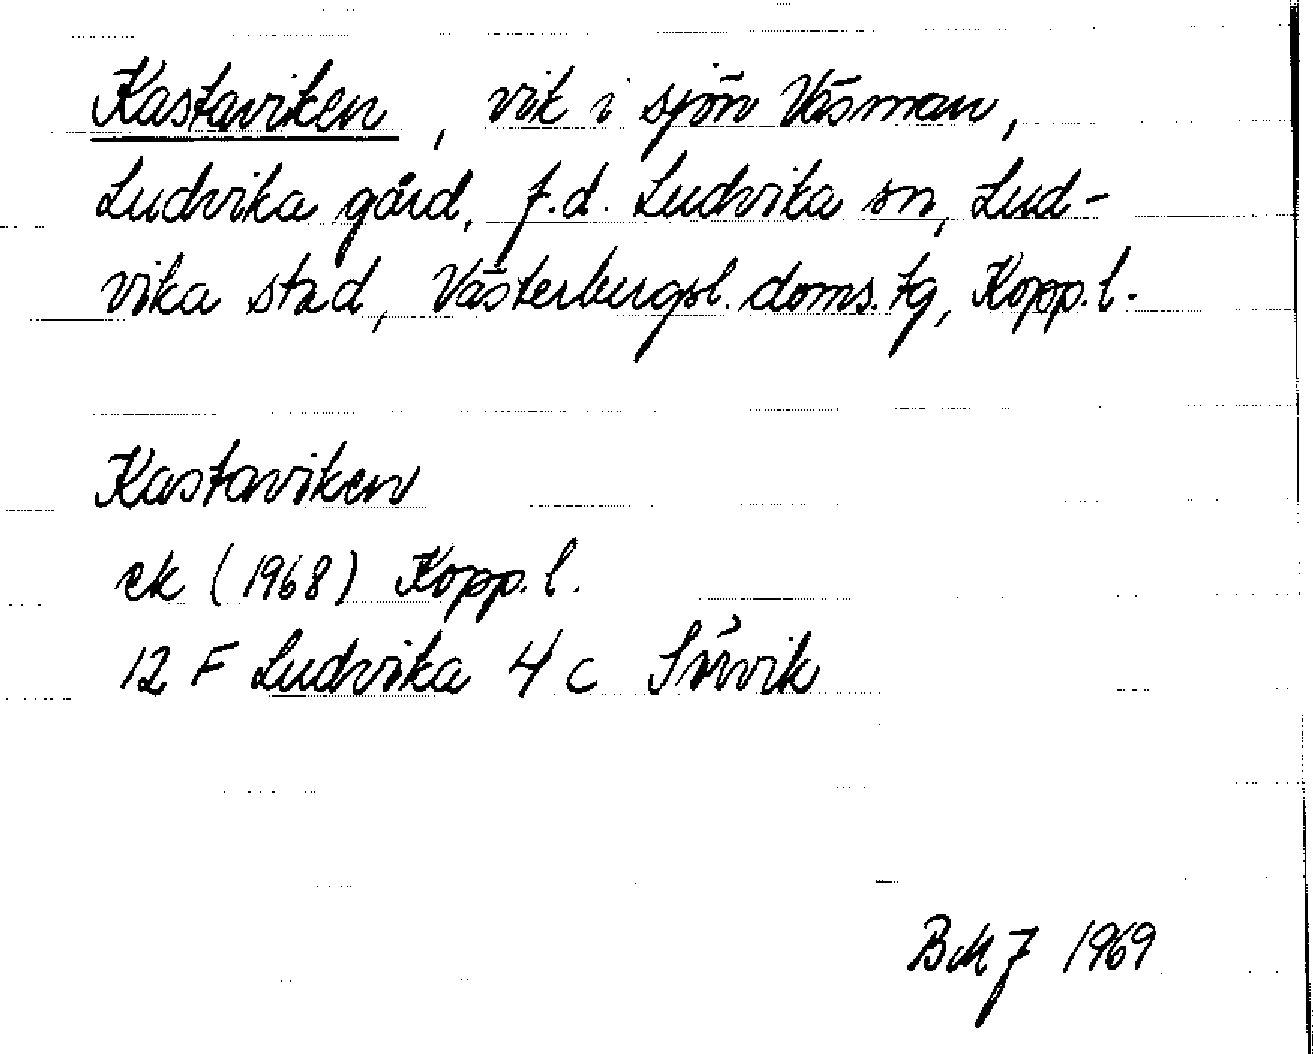 Kastaviken, vik i sjön Väsman,
Ludvika gård, f.d. Ludvika sn, Lud-
vika stad, Västerbergsl. doms. tg, Kopp. l.
Kastaviken
ek (1968) Kopp. l.
12 F Ludvika 4 c Sörvik
BMJ 1969